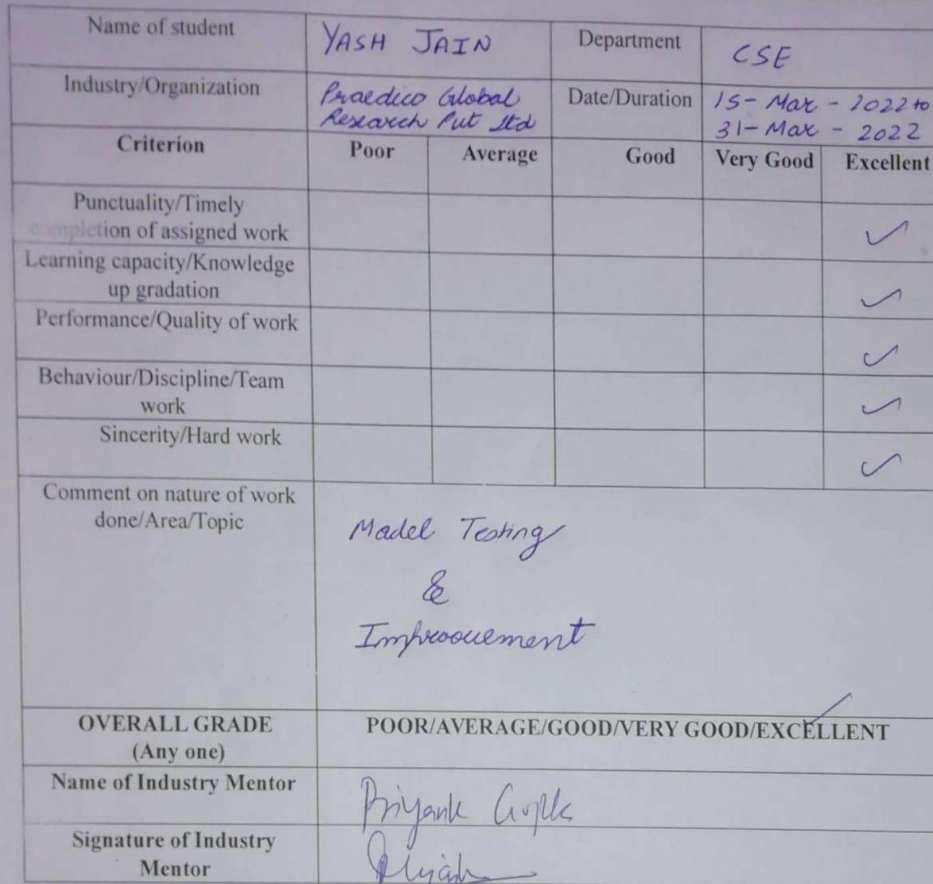 Name of student YASH JAIN Department CSE
Industry/Organization Praedico Global Date/Duration 15-Mar-2022 to
Research Put Ltd 31-Mar-2022
Criterion Poor Average Good Very Good Excellent
Punctuality/Timely
completion of assigned work ✓
Learning capacity/Knowledge
up gradation ✓
Performance/Quality of work ✓
Behaviour/Discipline/Team
work ✓
Sincerity/Hard work ✓
Comment on nature of work
done/Area/Topic
Madel Testing
&
Improouement
OVERALL GRADE POOR/AVERAGE/GOOD/VERY GOOD/EXCELLENT ✓
(Any one)
Name of Industry Mentor Priyank Gupta
Signature of Industry
Mentor